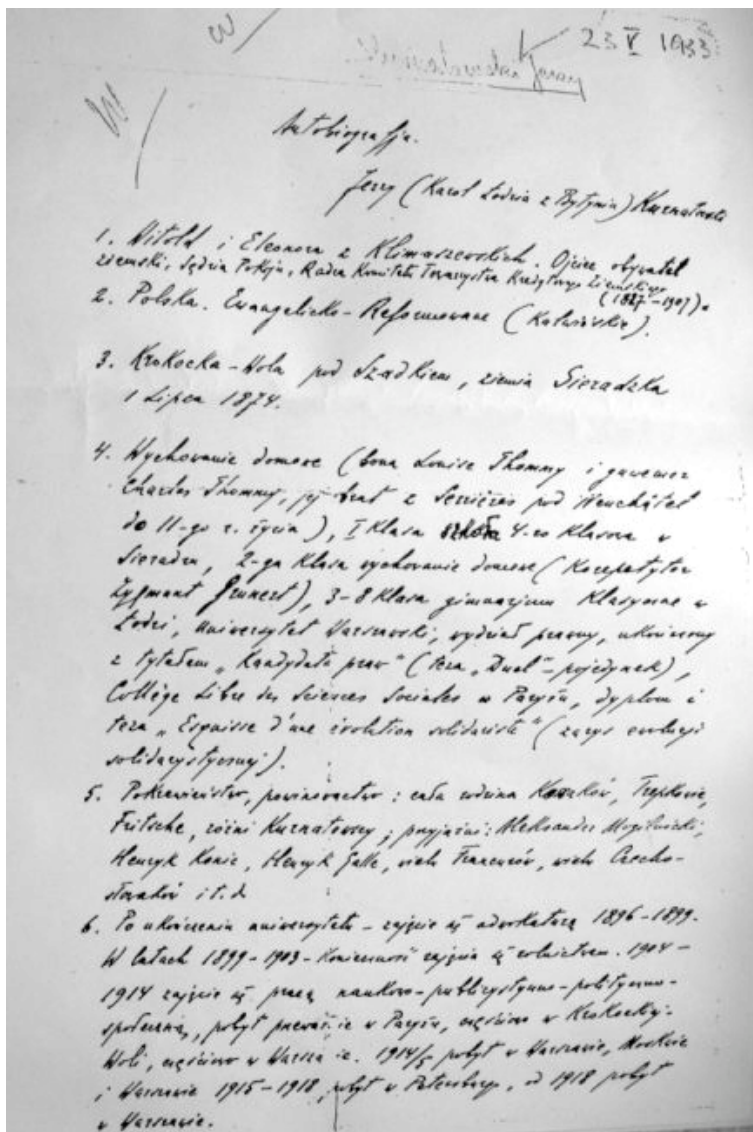 23 V 1933
Autobiografja.
Jerzy (Karol Łodzia z Bytynia) Kurnatowski
1. Witold i Eleonora z Klimaszewskich. Ojciec obywatel
ziemski, Sędzia Pokoju, Radca Komitetu Towarzystwa Kredytowego Ziemskiego
(1827-1907).
2. Polska. Ewangelicko-Reformowane (Kalwińskie).
3. Krokocka-Wola pod Szadkiem, ziemia Sieradzka
1 Lipca 1874.
4. Wychowanie domowe (bona Louise Thommy i guwerner
Charles Thommy, jej brat z Serrières pod Neuchâtel
do 11-go r. życia), I klasa szkoła 4-ro klasowa w
Sieradzu, 2-ga klasa wychowanie domowe (Korepetytor
Zygmunt Grunert), 3-8 klasa gimnazjum klasyczne w
Łodzi, Uniwersytet Warszawski, wydział prawny, ukończony
z tytułem "Kandydata praw" (teza "Duel"-pojedynek),
Collège Libre des Sciences Sociales w Paryżu, dyplom i
teza "Esquisse d'une évolution solidariste" (zarys ewolucji
solidarystycznej).
5. Pokrewieństwo, powinowactwo: cała rodzina Trepkowie,
Fritsche, różni Kurnatowscy; przyjaźni: Aleksander Mogilnicki,
Henryk Konic, Henryk Galle, wielu Francuzów, wielu Czecho-
słowaków i t. d.
6. Po ukończeniu uniwersytetu - zajęcie się adwokaturą 1896-1899.
W latach 1899-1903 - Konieczność zajęcia się rolnictwem. 1904-
1914 zajęcie się pracą naukowo-publicystyczno-polityczno-
społeczną, pobyt przeważnie w Paryżu, częściowo w Krokockiej-
Woli, częściowo w Warszawie. 1914/5 pobyt w Warszawie, Moskwie
i Warszawie 1915-1918 pobyt w Petersburgu, od 1918 pobyt
w Warszawie.